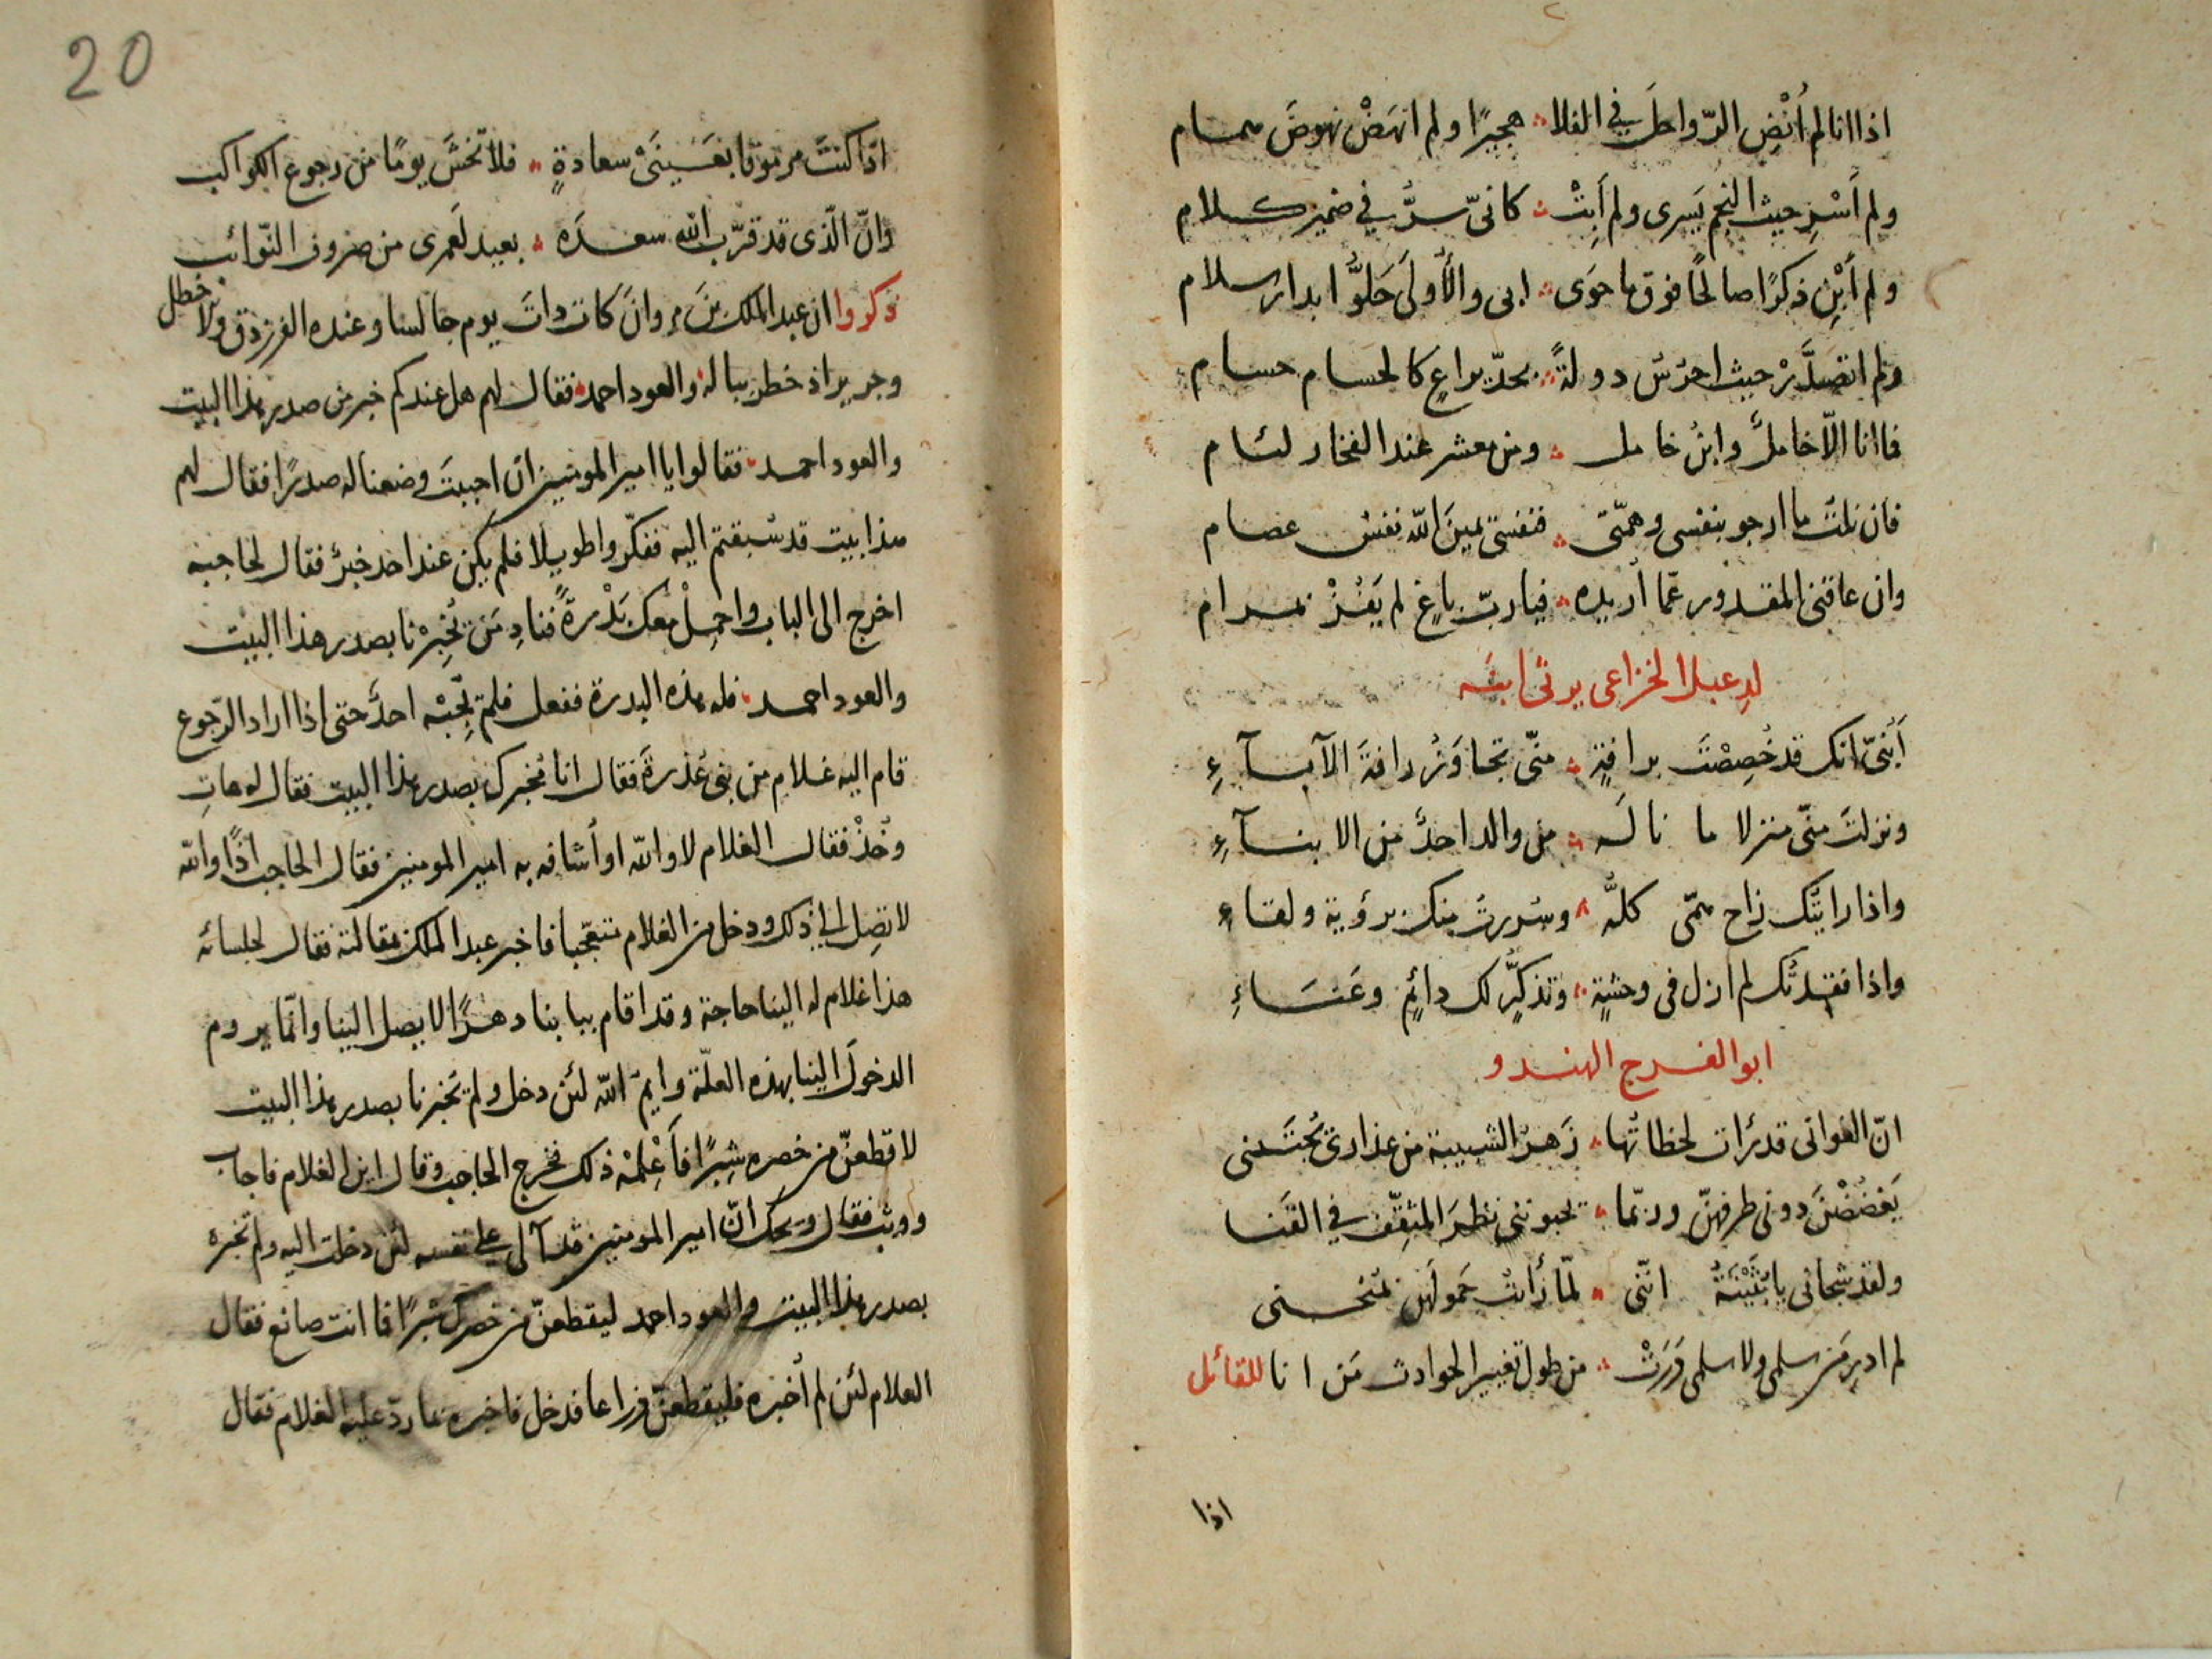 اذا انا لم أُنْضِ الرّواحلَ في الفلا ∴ هجيرًا ولم انهَضْ نهوضَ همام
ولم أَسْرِ حيث النجم يَسرى ولم أَبِتْ ∴ كانّى سرٌّ في ضمير كلام
ولم أَبْنِ ذكرًا صالحًا فوق ما حَوَى ∴ ابى والأولَى حَلوُّا بدار سلام
ولم اتصدَّرْ حيث احرُس دولةً ∴ بحدّ يراعٍ كالحسام حسام
فما انا الّا خاملٌ وابنُ خامل ∴ ومن معشر عند الفخار لئام
فان نلتُ ما ارجو بنفسى وهمّتى ∴ فنفسى يمينَ الله نفسُ عصام
وان عاقنى المقدور عمّا أريده ∴ فيا ربّ باغٍ لم يَفُزْ بمرام
لدِعبل الخزاعى يرثى ابنَه
أَبُنىّ انك قد خُصِصْتَ برافةٍ ∴ منّى تجاوَزُ رافةَ الآبآءِ
ونزلتَ منّى منزلا ما نالَه ∴ من والد احدٌ من الابنآءِ
واذا رايتُك زاح همّى كلُّه ∴ وسُررتُ منك برؤية ولقاءِ
واذا فقدتُك لم ازل فى وحشةٍ ∴ وتذكّرٍ لك دائمٍ وعَنَاءِ
ابو الفرج الهندو
انّ الغوانى قدئرات لحظاتُها ∴ زَهرَ الشبيبة من عذارى يُجتَنى
يَغضُضْنَ دونى طرفهنّ وربّما ∴ تحبوننى نظرَ المثقِّف في القَنا
ولقد شجانى يا بُثَيْنَةُ انّنى ∴ لمّا رأت حَمولَهن تمنحنى
لم ادرِ مَن سلمى ولا سلمى دَرَتْ ∴ من طول تغيير الحوادث مَن انا للقائل
اذا
20
اذا كنتَ مرموقا بعَيْنَىْ سعادةٍ ∴ فلا تخشَ يومًا من رجوع الكواكب
وانّ الّذى قد قرّب الله سعدَه ∴ بعيد لَعمرى من صروف النّوائب
ذكروا ان عبد الملك بنَ مروانَ كان ذاتَ يوم جالسا وعنده الفرزدق والاخطل
وجرير اذ خطر بباله والعود احمد فقال لهم هل عندكم خبر من صدر هذا البيت
والعود احمد فقالوا يا امير المومنين ان احببتَ وضعنا له صدرًا فقال لهم
هذا بيت قد سُبقتم اليه ففكّروا طويلا فلم يكن عند احد خبرٌ فقال لحاجبه
اخرج الى الباب واحمِلْ معك بَدْرةً فنادِ مَن يُخبِرْنا بصدر هذا البيت
والعود احمد فله هذه البدرة ففعل فلم يُجبْه احدٌ حتى اذا اراد الرّجوع
قام اليه غلام من بنى عُذرةَ فقال انا مُخبرك بصدر هذا البيت فقال له هاتِ
وخُذْ فقال الغلام لا والله او أشافه به امير المومنين فقال الحاجب اذًا والله
لا تصِل الى ذلك ودخل من الغلام متعجّبا فاخبر عبد الملك مقالته فقال لجلسائه
هذا غلام له الينا حاجة وقد اقام ببابنا دهرًا لا يصل الينا وانّما يروم
الدخولَ الينا بهذه العلّة وايمُ الله لئن دخل ولم يُخبرنا بصدر هذا البيت
لاقطعنّ من خصره شِبرًا فأَعْلِمْه ذلك فخرج الحاجب وقال اين الغلام فاجاب
ووثب فقال ويحك انّ امير المومنين قد آلى على نفسه لئن دخلت اليه ولم تُخبره
بصدر هذا البيت والعود احمد ليقطعنّ من خصرك شبرًا فما انت صانع فقال
الغلام لئن لم أخبره فليقطعنّ ذراعا فدخل فاخبره بما ردّ عليه الغلام فقال